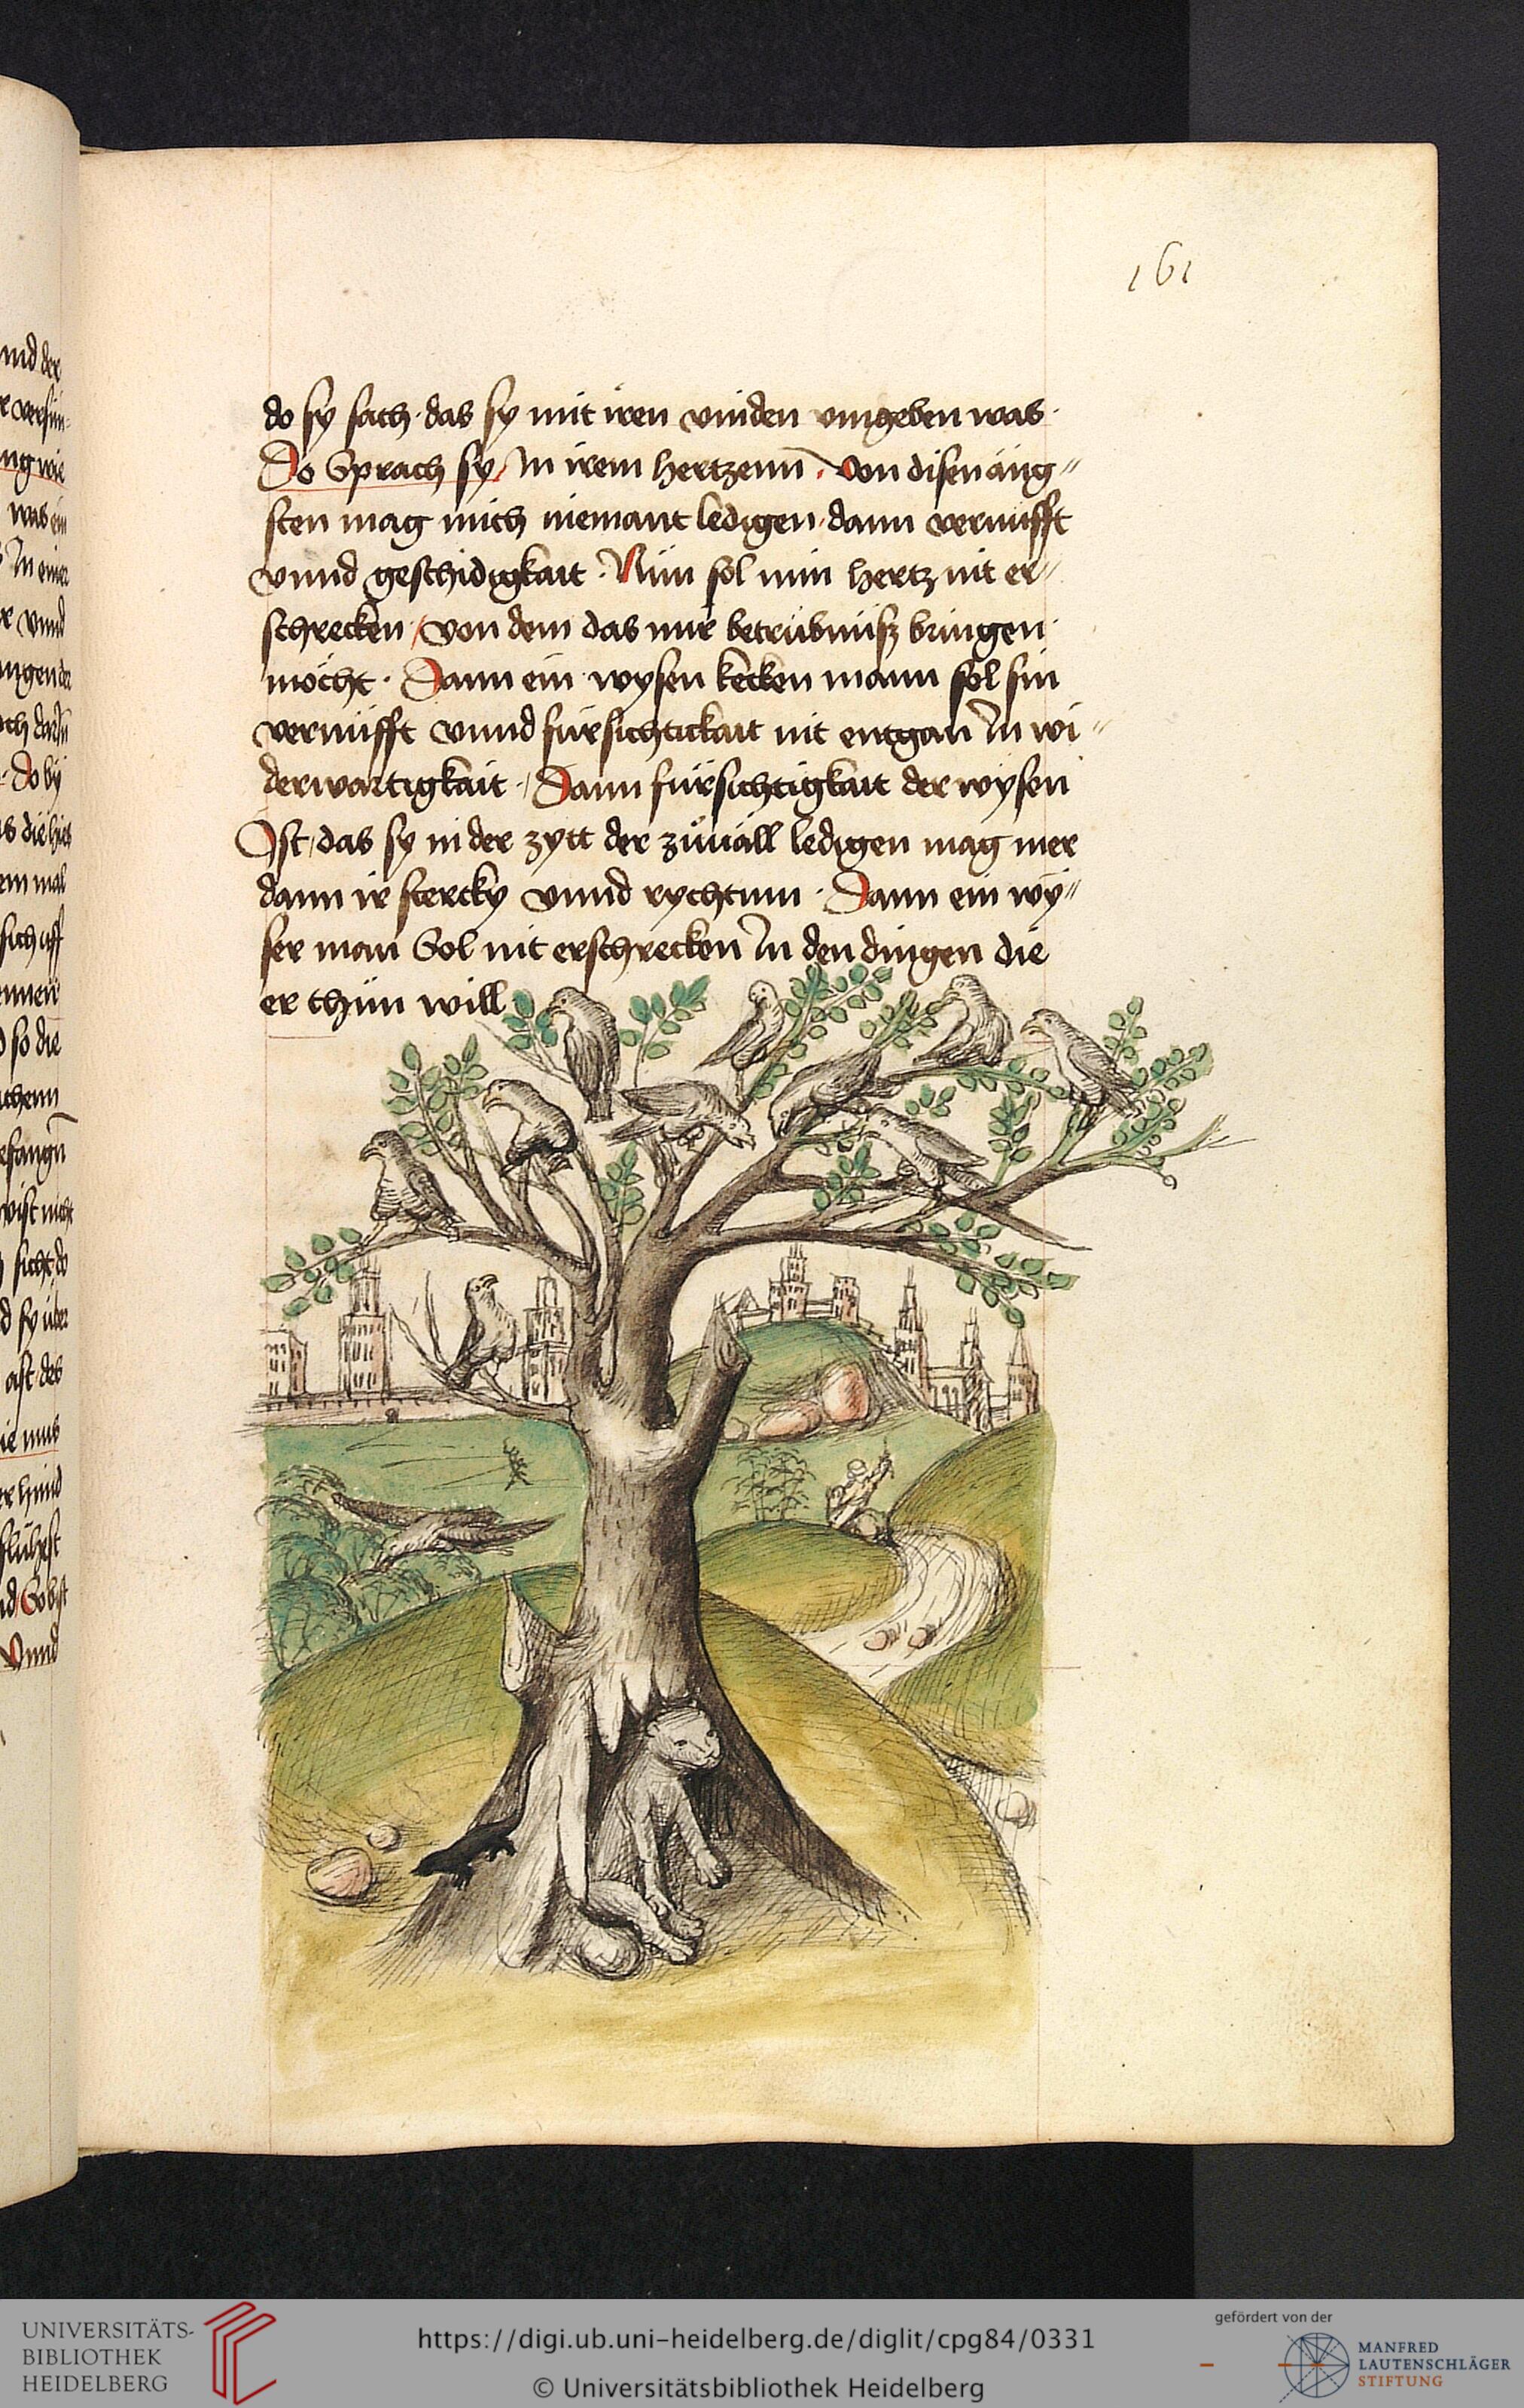 161
do sy sach · das sy mit iren vinden vmgeben was ·
Do Sprach sy / In irem hertzenn · Von disen äng〃
sten mag mich niemant ledigen / dann vernufft
vnnd geschidigkait · Nün sol min hertz nit er〃
schrecken / von dem das mir betrübnüsz bringen
möcht · Dann ein wysen kecken mann sol sin
vernüfft vnnd fürsichtickait nit entgan In wi〃
derwartigkait · / Dann fürsichtigkait der wysen
Ist / das sy in der zytt der zůuäll ledigen mag mer
dann ir stercky vnnd rychtum · Dann ein wy〃
ser man Sol nit erschrecken In den dingen die
er thün will
nnd der
ng wie
was ein
In einer
vnnd
do by
em mal
sich uff
so die
sicht do
sy über
ast des
die mus
Vnnd
UNIVERSITÄTS-
BIBLIOTHEK
HEIDELBERG
https://digi.ub.uni-heidelberg.de/diglit/cpg84/0331
© Universitätsbibliothek Heidelberg
gefördert von der
MANFRED
LAUTENSCHLÄGER
STIFTUNG